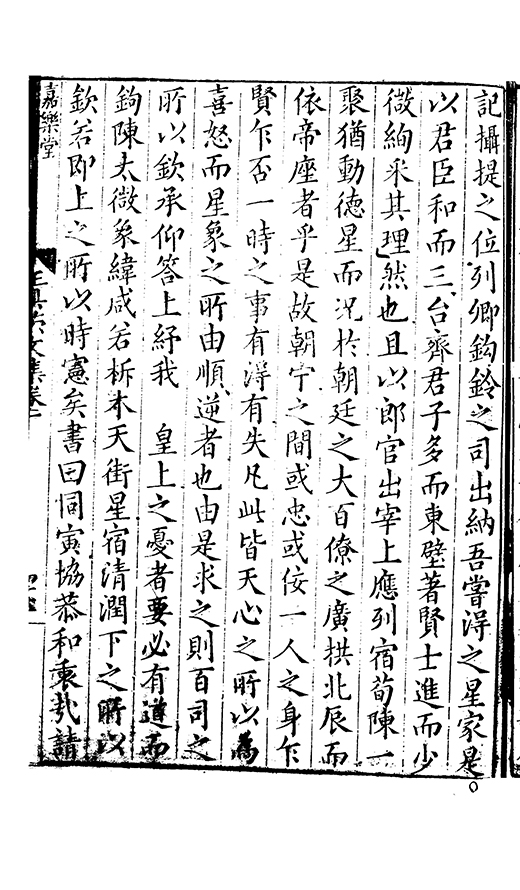 記攝提之位列卿鈎鈐之司出納吾嘗淂之星家是
以君臣和而三台齊君子多而東壁著賢士進而少
微絢釆其理然也且以郎官出宰上應列宿荀陳一
聚猶動德星而況於朝廷之大百僚之廣拱北辰而
依帝座者乎是故朝宁之間或忠或佞一人之身乍
賢乍否一時之事有淂有失凡此皆天心之所以為
喜怒而星象之所由順逆者也由是求之則百司之
所以欽承仰答上紓我 皇上之憂者要必有道而
鉤陳太微象緯咸若析木天街星宿清潤下之所以
欽若即上之所以時憲矣書曰同寅協恭和衷哉請
嘉樂堂
文集卷二